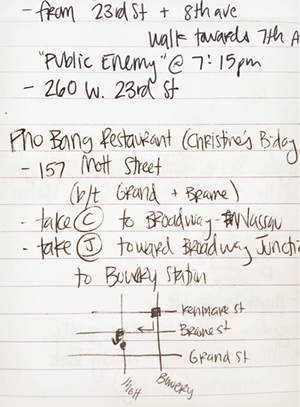 - from 23rd St + 8th ave
walk towards 7th A
"Public Enemy" @ 7:15pm
- 260 W. 23rd St
Pho Bang Restaurant (Christine's Bday
- 157 Mott Street
(b/t Grand + Brome)
- take C to Broadway-Nassau
- take J toward Broadway Junctio
to Bowery Station
Kenmare st
Brome st
Grand St
Mott
Bowery